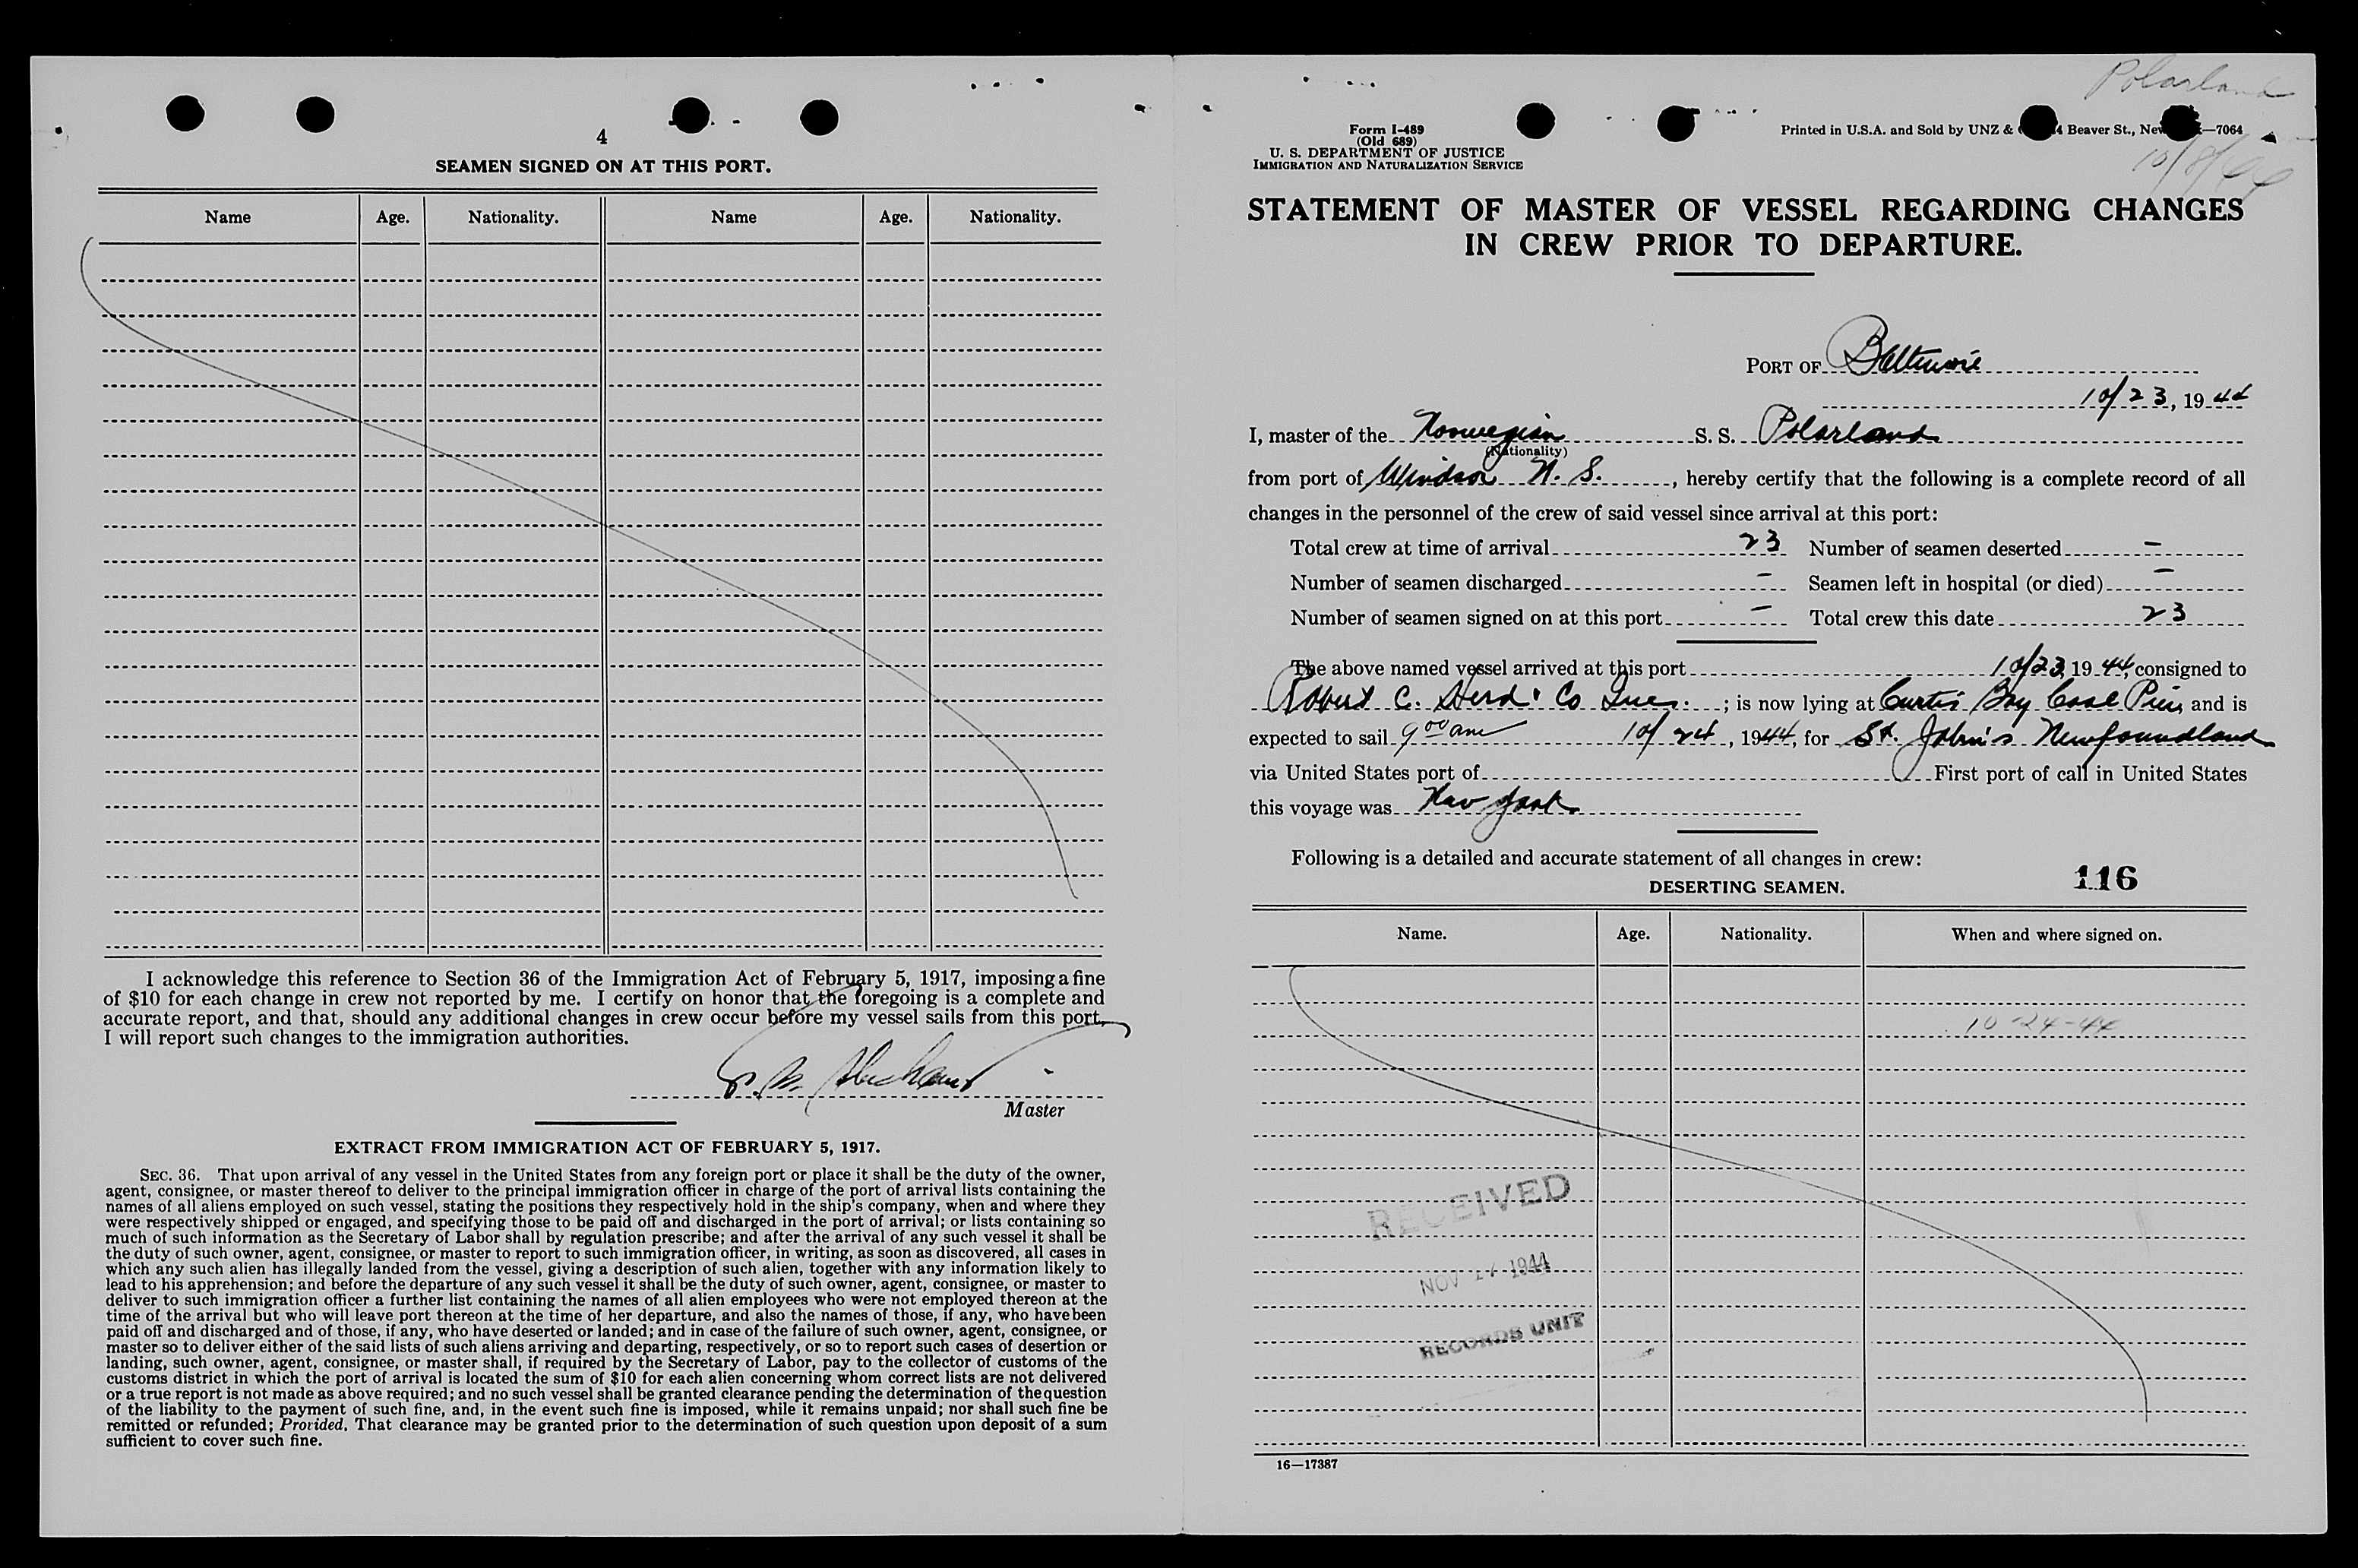 4
SEAMEN SIGNED ON AT THIS PORT.
Name Age. Nationality. Name Age. Nationality.
I acknowledge this reference to Section 36 of the Immigration Act of February 5, 1917, imposing a fine
of $10 for each change in crew not reported by me. I certify on honor that the foregoing is a complete and
accurate report, and that, should any additional changes in crew occur before my vessel sails from this port,
I will report such changes to the immigration authorities.
Master
EXTRACT FROM IMMIGRATION ACT OF FEBRUARY 5, 1917.
SEC. 36. That upon arrival of any vessel in the United States from any foreign port or place it shall be the duty of the owner,
agent, consignee, or master thereof to deliver to the principal immigration officer in charge of the port of arrival lists containing the
names of all aliens employed on such vessel, stating the positions they respectively hold in the ship's company, when and where they
were respectively shipped or engaged, and specifying those to be paid off and discharged in the port of arrival; or lists containing so
much of such information as the Secretary of Labor shall by regulation prescribe; and after the arrival of any such vessel it shall be
the duty of such owner, agent, consignee, or master to report to such immigration officer, in writing, as soon as discovered, all cases in
which any such alien has illegally landed from the vessel, giving a description of such alien, together with any information likely to
lead to his apprehension; and before the departure of any such vessel it shall be the duty of such owner, agent, consignee, or master to
deliver to such immigration officer a further list containing the names of all alien employees who were not employed thereon at the
time of the arrival but who will leave port thereon at the time of her departure, and also the names of those, if any, who have been
paid off and discharged and of those, if any, who have deserted or landed; and in case of the failure of such owner, agent, consignee, or
master so to deliver either of the said lists of such aliens arriving and departing, respectively, or so to report such cases of desertion or
landing, such owner, agent, consignee, or master shall, if required by the Secretary of Labor, pay to the collector of customs of the
customs district in which the port of arrival is located the sum of $10 for each alien concerning whom correct lists are not delivered
or a true report is not made as above required; and no such vessel shall be granted clearance pending the determination of the question
of the liability to the payment of such fine, and, in the event such fine is imposed, while it remains unpaid; nor shall such fine be
remitted or refunded; Provided, That clearance may be granted prior to the determination of such question upon deposit of a sum
sufficient to cover such fine.
Polarland
10/8/44
Form I-489
(Old 689)
U. S. DEPARTMENT OF JUSTICE
IMMIGRATION AND NATURALIZATION SERVICE
Printed in U.S.A. and Sold by UNZ & Beaver St., New —7064
STATEMENT OF MASTER OF VESSEL REGARDING CHANGES
IN CREW PRIOR TO DEPARTURE.
PORT OF Baltimore
10/23, 1944
I, master of the Norwegian S. S. Polarland
(Nationality)
from port of Windsor N. S., hereby certify that the following is a complete record of all
changes in the personnel of the crew of said vessel since arrival at this port:
Total crew at time of arrival 23 Number of seamen deserted –
Number of seamen discharged – Seamen left in hospital (or died) –
Number of seamen signed on at this port – Total crew this date 23
The above named vessel arrived at this port 10/23, 1944, consigned to
Robert C. Herd & Co Inc.; is now lying at Curtis Bay Coal Pier, and is
expected to sail 9 00 am 10/24, 1944, for St. John's Newfoundland
via United States port of First port of call in United States
this voyage was New York
Following is a detailed and accurate statement of all changes in crew:
116
DESERTING SEAMEN.
Name. Age. Nationality. When and where signed on.
10-24-44
RECEIVED
NOV 1944
RECORDS UNIT
16—17387